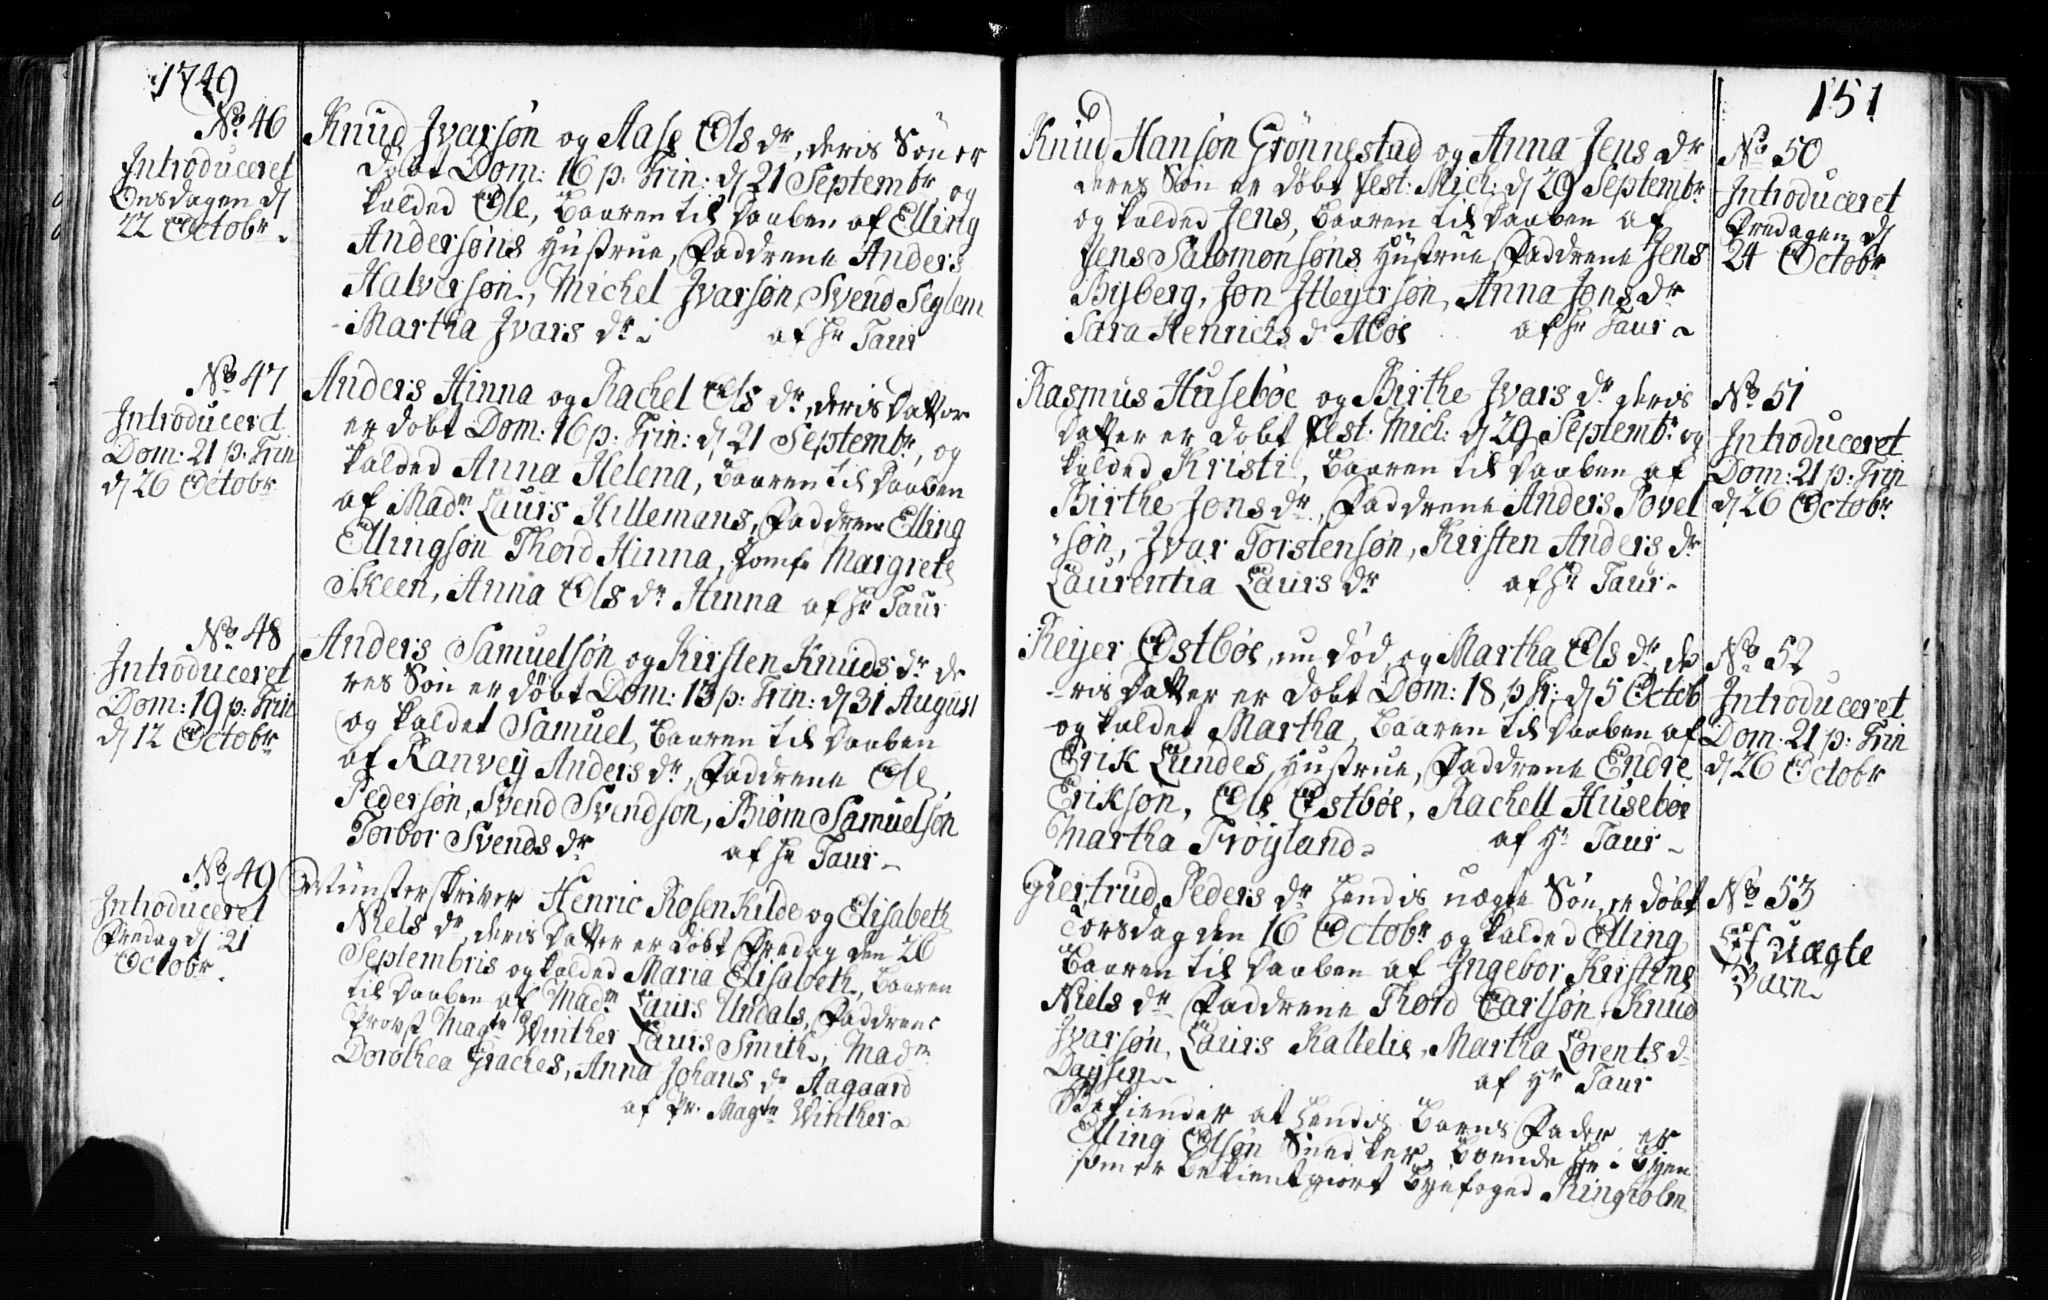 1749
No. 46
Introduceret
Onsdagen d
22 Octobr
Knud Jvarsøn og Aase Ols dr, deris Søn er
døbt Dom: 16 p: Trin: d 21 Septembr og
kalded Ole, baaren til daaben af Elling
Andersøns Hustrue, Faddrene Anders
Halversøn, Michel Jvarsøn, Svend Seglem
Martha Jvars dr: af Hr Taur
No. 47
Introduceret
Dom: 21 p: Trin
d 26 Octobr
Anders Hinna og Rachel Ols dr, deris Datter
er døbt Dom: 16 p: Trin: d 21 Septembr, og
kalded Anna Helena, baaren til daaben
af Madm Laurs Hillemans, Faddrene Elling
Ellingsøn Thord Hinna, Jomfr Margrete
Skeen, Anna Ols dr Hinna af Hr Taur
No. 48
Introduceret
Dom: 19 p: Trin
d 12 Octobr
Anders Samuelsøn og Kirsten Knuds dr de
res Søn er døbt Dom: 13 p: Trin: d 31 August
og kaldet Samuel, baaren til daaben
af Ranvey Anders dr, Faddrene Ole
Pedersøn, Svend Svendsøn, Biørn Samuelsøn
Torbor Svends dr af Hr Taur
No. 49
Introduceret
Fredag d 21
Octobr
Mynsterskriver Henric Rosenkilde og Elisabeth
Niels dr, deris Datter er døbt Fredag den 26
Septembris og kalded Maria Elisabeth, baaren
til daaben af Madm Laurs Undals, Faddrene
Provst Magtr Winther Laurs Smith, Madm
Dorothea Graches, Anna Johans dr Aagaard
af Pr. Magtr Winther
151
Knud Hansøn Grönnestad og Anna Jens dr
deres Søn er døbt Fest: Mich: d 29 Septembr
og kalded Jens, baaren til daaben af
Jens Salomonsøns Hustrue, Faddrene Jens
Byberg, Jon Meyersøn, Anna Jons dr
Sara Henrichs d Aboe af Hr Taur
No 50
Introduceret
Fredagen d
24 Octobr
Rasmus Husebøe og Birthe Jvars dr deris
Datter er døbt Fest: Mich: d 29 Septembr og
kalded Kristi, baaren til daaben af
Birthe Jons dr, Faddrene Anders Povel
søn, Jvar Torstensøn, Kirsten Anders dr
Laurentia Laurs dr af Hr Taur
No 51
Introduceret
Dom: 21 p: Trin
d 26 Octobr
Reyer Østbøe, nu død, og Martha Ols dr, de
ris Datter er døbt Dom: 18 p Tr: d 5 Octob
og kaldet Martha, baaren til daaben af
Erik Lundes Hustrue, Faddrene Endre
Eriksøn, Ole Østbøe, Rachell Husebøe
Martha Frøyland af Hr Taur
No 52
Introduceret
Dom: 21 p: Trin
d 26 Octobr
Giertrud Peders dr hendis uægte Søn, er døbt
Torsdag den 16 Octobr og kalded Elling
baaren til daaben af Ingebor Kirstine
Niels dr Faddrene Thord Carlsøn, Knud
Jvarsøn, Laurs Kallelie, Martha Lorents d
af Hr Taur
Bekiender at hendis Barns Fader er
Elling Olsøn Snedker, boende her i Byen
som er bekientgiort Byefoged Ringholm
No 53
Et Uægte
Barn